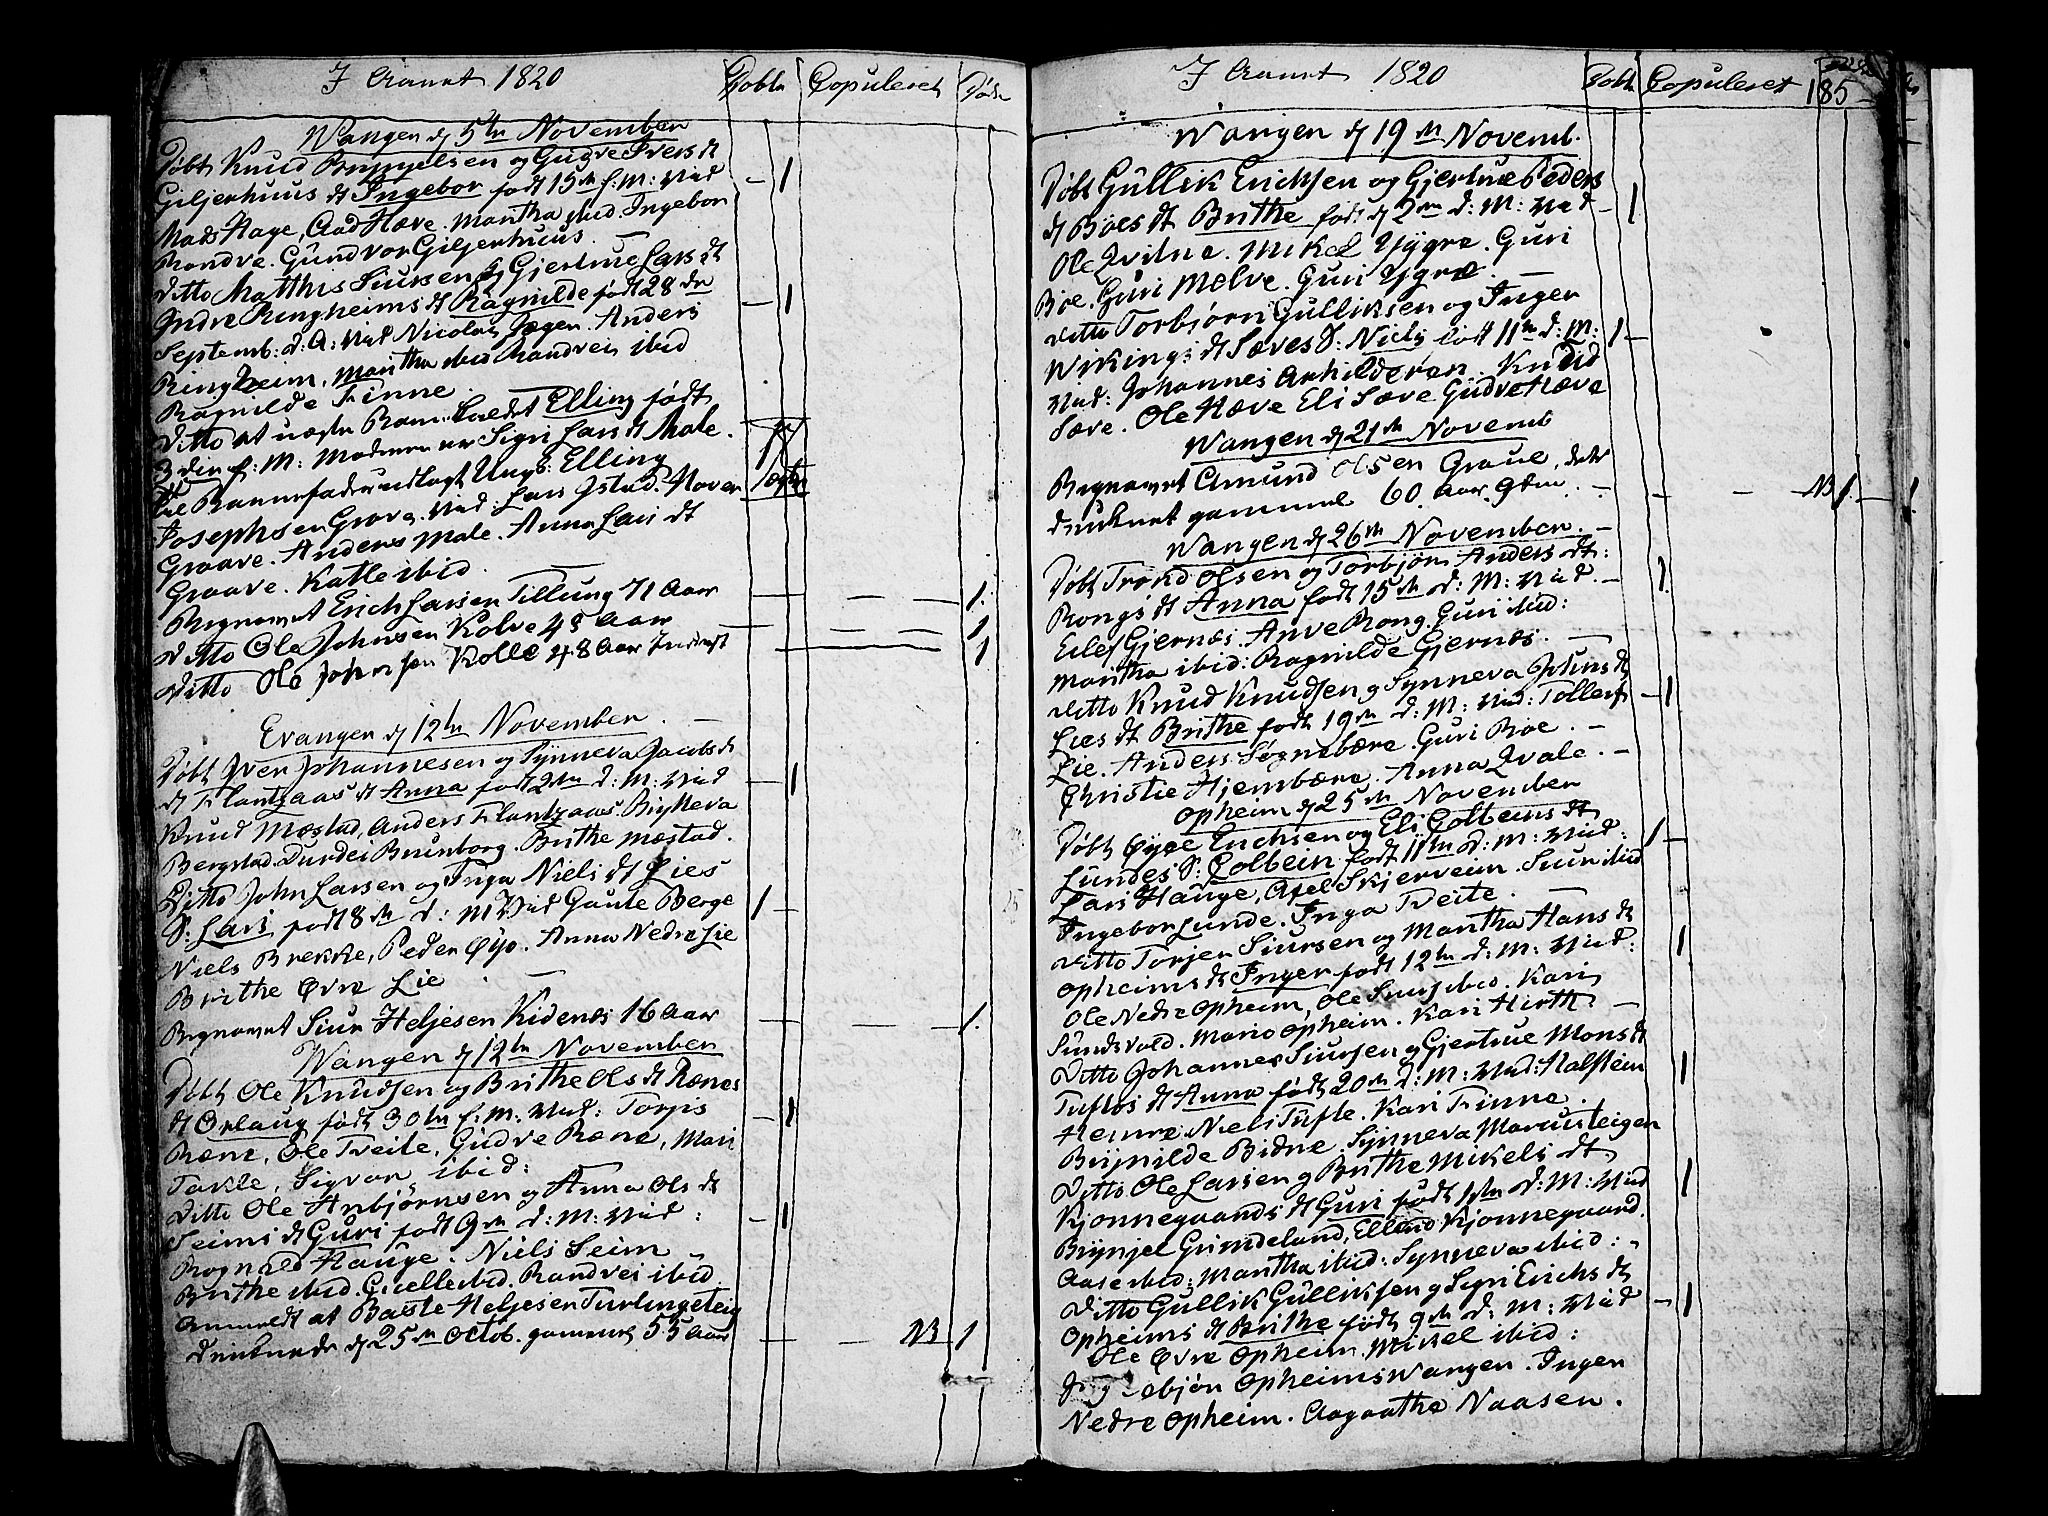 I Aaret 1820 Døbte Copuleret Døde
Wangen d 5te November
Døbt Knud Brynjelsen og Gudve Ivers dt
Giljerhuus dt Ingebor født 15de f: M: Vid
Mads Hage, Aad Hæve. Martha ibid Ingebor
Rondve. Gundvor Giljerhuus. 1
Ditto Matthis Siursen og Gjertrue Lars dt
Indre Ringheims dt Ragnilde født 28de
Septemb: d: A: Vid Nicolai Jægen. Anders 1
Ringheim, Martha ibid Randvei ibid
Ragnilde Finne.
Ditto et uægte Barn kaldet Elling født
3die f: M: Moderen er Sigri Lars dt Male.
til Barnefader udlagt Ungk: Elling
Josephsen Grove. Vid: Lars Gstad. Stover uægte
Graave. Anders Male. Anna Lars dt
Graave. Katle ibid.
Begravet Erich Larsen Tillung 71 Aar 1.
Ditto Ole Johnsen Kolve 48 Aar 1
Ditto Ole Johnsen Kolle 48 Aar 1
Evangen d 12te November.
Døbt Iver Johannesen og Synneva Jacobs dt
dt Flantzaas dt Anna født 2den d: M: Vid 1
Knud Mæstad, Anders Flantzaas. Brytteva
Bergstad. Durdei Brunborg. Brithe Mæstad.
Ditto John Larsen og Inga Niels dt Lies
S: Lars født 8de d: M Vid Gaute Berge 1
Niels Brekke, Peder Øyo. Anna Nedre Lie
Brithe Øvre Lie
Begravet Siur Heljesen Kidenæs 16 Aar 1.
Wangen d 12te November
Døbt Ole Knudsen og Brithe Ols dt Rænes
dt Orlaug født 30te f: M. Vid: Torjis 1
Ræne, Ole Tveite, Gudve Ræne, Mari
Takle, Sigvor ibid:
Ditto Ole Anbjørnsen og Anna Ols dt
Seims dt Guri født 9de d: M: Vid: 1
Rognald Hauge. Niels Seim
Brithe ibid. Gielle ibid. Randvei ibid
Anmeldt at Baste Heljesen Turlingsteig
druknede d 25de Octob. gammel 55 Aar NB 1
I Aaret 1820 Døbte Copuleret 185
Wangen d 19de Novemb.
Døbt Gullik Erichsen og Gjertrue Peders
dt Böes dt Brithe født d 2den d: M: Vid 1
Ole Qvitne. Mikel Yggre. Guri
Böe. Guri Mølve. Guri Ygre.
Ditto Torbjørn Gulliksen og Inger
Wikings dt Sæves S: Niels født 11te d: M: 1
Vid: Johannes Arhilderøen. Knud
Sæve. Ole Hæve Eli Sæve Gudve Hæve
Wangen d 21de Novemb
Begravet Amund Olsen Graue, død
druknet gammel 60 Aar 9 M NB 1 1
Wangen d 26de November.
Døbt Trond Olsen og Torbjør Anders dt:
Rongs dt Anna født 15de d: M: Vid. 1
Eilef Gjernæs. Anve Rong. Guri ibid:
Martha ibid: Ragnilde Gjernæs.
Ditto Knud Knudsen og Synneva Johns dt
Lies dt Brithe født 19de d: M: Vid: Tollef 1
Lie. Anders Søgnebære. Guri Roe.
Christie Hjembære. Anna Qvale.
Opheim d 25de November
Døbt Øyel Erichsen og Eli Colbeins dt
Lundes S: Colbein født 11te d: M: Vid: 1
Lars Hauge, Axel Skjerveim. Siur ibid
Ingebor Lunde. Inga Tveite.
Ditto Torjer Siursen og Martha Hans dt
Opheims dt Inger født 12te d: M: Vid: 1
Ole Nedre Opheim, Ole Snug ibid. Kari
Sundsvald. Mario Opheim. Kari Hirth.
Ditto Johannes Siursen og Gjertrue Mons dt
Tuftes dt Anna født 20de d: M: Vid: Halstein 1
Hemre. Niels Tufte. Kari Finne.
Brynilde Bidne. Synneva Marcusteigen
Ditto Ole Larsen og Brithe Mikels dt
Kjonnegaards dt Guri født 1ste d: M: Vid 1
Brynjel Grimdeland, Elland Kjonnegaard.
Aase ibid: Martha ibid: Synneva ibid:
Ditto Gullik Gulliksen og Syri Erichs dt
Opheims dt Brithe født 9de d: M: Vid 1
Ole Øvre Opheim. Mikel ibid:
Ingebjør Opheimswangen. Inger
Nedre Opheim. Aagaathe Naasen.